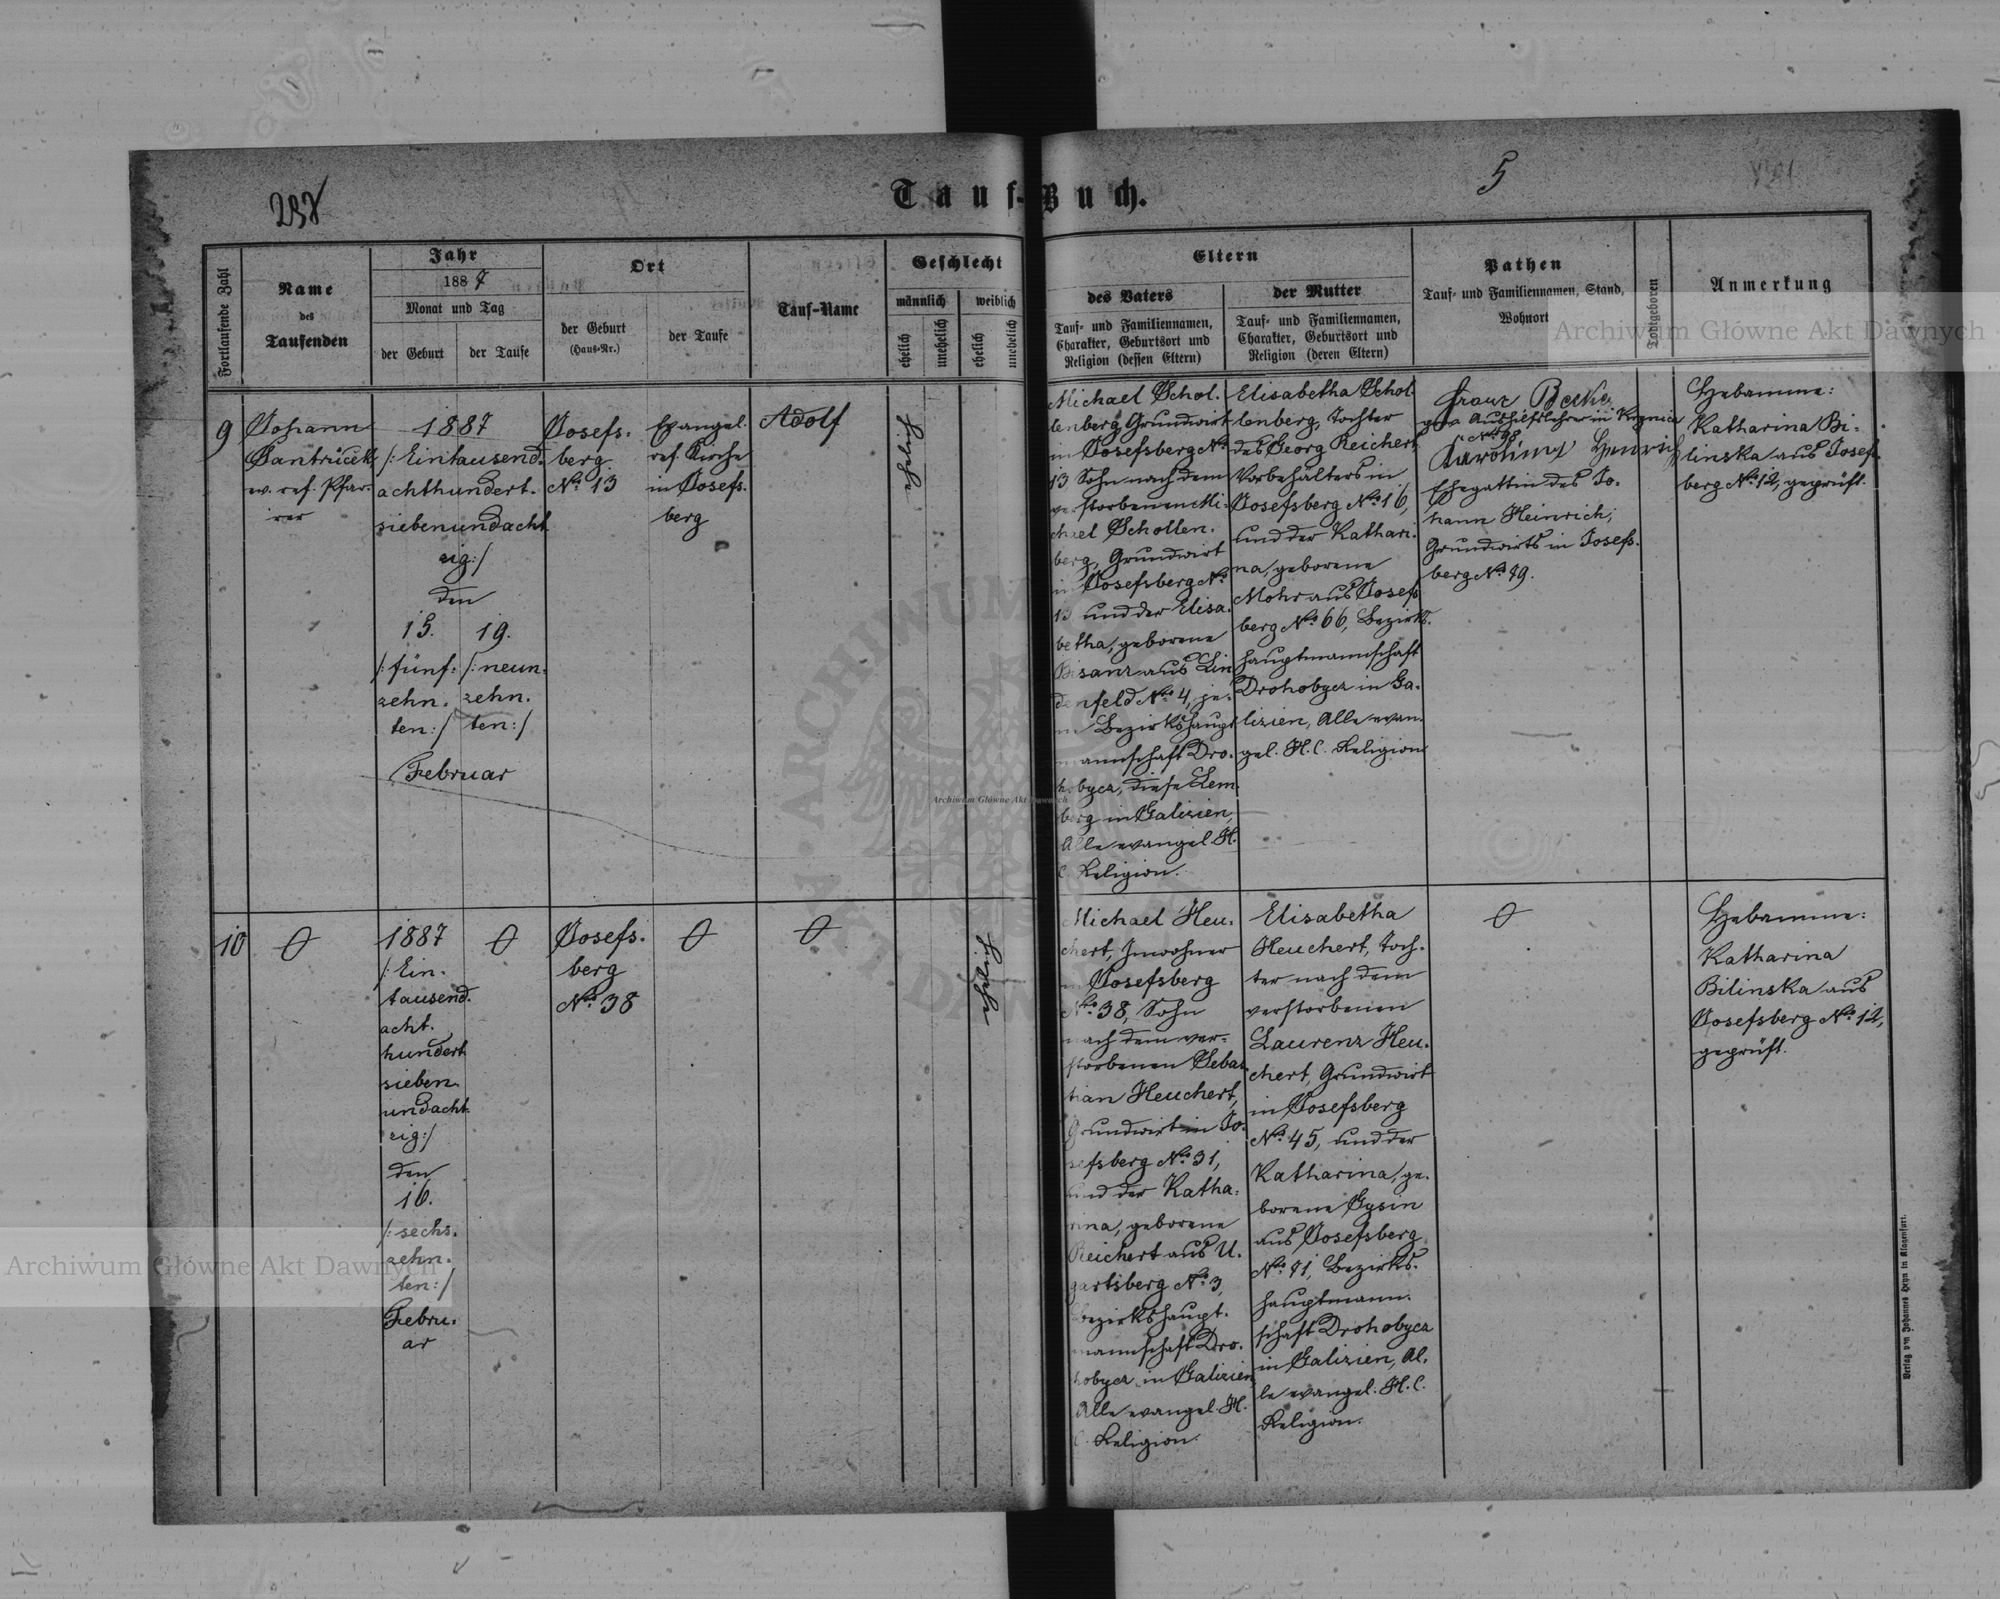 Tauf-Buch.
5
Fortlaufende Zahl
Name
des
Taufenden
Jahr
1887
Monat und Tag
der Geburt
der Taufe
Ort
der Geburt
(Haus-Nr.)
der Taufe
Tauf-Name
Geschlecht
männlich
weiblich
ehelich
unehelich
ehelich
unehelich
Eltern
des Vaters
Tauf- und Familiennamen,
Charakter, Geburtsort und
Religion (dessen Eltern)
der Mutter
Tauf- und Familiennamen,
Charakter, Geburtsort und
Religion (deren Eltern)
Pathen
Tauf- und Familiennamen, Stand,
Wohnort
Todtgeboren
Anmerkung
9
Johann
ev. ref. Pfar-
rer
1887
/: Eintausend-
achthundert-
siebenundacht
zig :/
den
15.
/: fünf-
zehn-
ten :/
19.
/: neun-
zehn-
ten :/
Februar
Josefs-
berg
No. 13
Evangel.
ref. Kirche
in Josefs-
berg
Adolf
ehelich
Michael Schol-
lenberg, Grundwirt
in Josefsberg No.
13 Sohn nach dem
verstorbenen Mi-
chael Schollen-
berg, Grundwirt
in Josefsberg No.
13 und der Elisa-
betha, geborene
Bisanz aus Lin
denfeld No. 4, je-
ne Bezirkshaupt
mannschaft Dro-
hobycz, diese Lem
berg in Galizien,
Alle evangel. H.
C. Religion.
Elisabetha Schol
lenberg, Tochter
des Georg Reichert,
Vorbehälters in
Josefsberg No. 16,
und der Kathari-
na, geborene
Mohr aus Josefs
berg No. 66, Bezirks-
hauptmannschaft
Drohobycz in Ga-
lizien, Alle evan-
gel. H. C. Religion
Franz
Aushilfslehrer in
Karolina Henrich
Ehegattin des Jo-
hann Heinrich,
Grundwirts in Josefs-
berg No.
Hebamme:
Katharina Bi-
linska aus Josefs-
berg No. 12, geprüft.
10
0
1887
/: Ein-
tausend-
acht-
hundert
sieben-
undacht
zig :/
den
16.
/: sechs-
zehn-
ten :/
Febru-
ar
0
Josefs-
berg
No. 38
0
0
ehelich
Michael Heu-
chert, Inwohner
in Josefsberg
No. 38, Sohn
nach dem ver-
storbenen Sebas
tian Heuchert,
Grundwirt in Jo-
sefsberg No. 31,
und der Katha-
rina, geborene
Reichert aus U-
gartsberg No. 3,
Bezirkshaupt-
mannschaft Dro-
hobycz in Galizien,
Alle evangel. H.
C. Religion.
Elisabetha
Heuchert, Toch-
ter nach dem
verstorbenen
Laurenz Heu-
chert, Grundwirt
in Josefsberg
No. 45, und der
Katharina, ge-
borene Gysin
aus Josefsberg
No. 71, Bezirks-
hauptmann-
schaft Drohobycz
in Galizien, Al-
le evangel. H. C.
Religion.
0
Hebamme:
Katharina
Bilinska aus
Josefsberg No. 12,
geprüft.
Verlag von Johannes Heyn in Klagenfurt.
Archiwum Główne Akt Dawnych
Archiwum Główne Akt Dawnych
Archiwum Główne Akt Dawnych